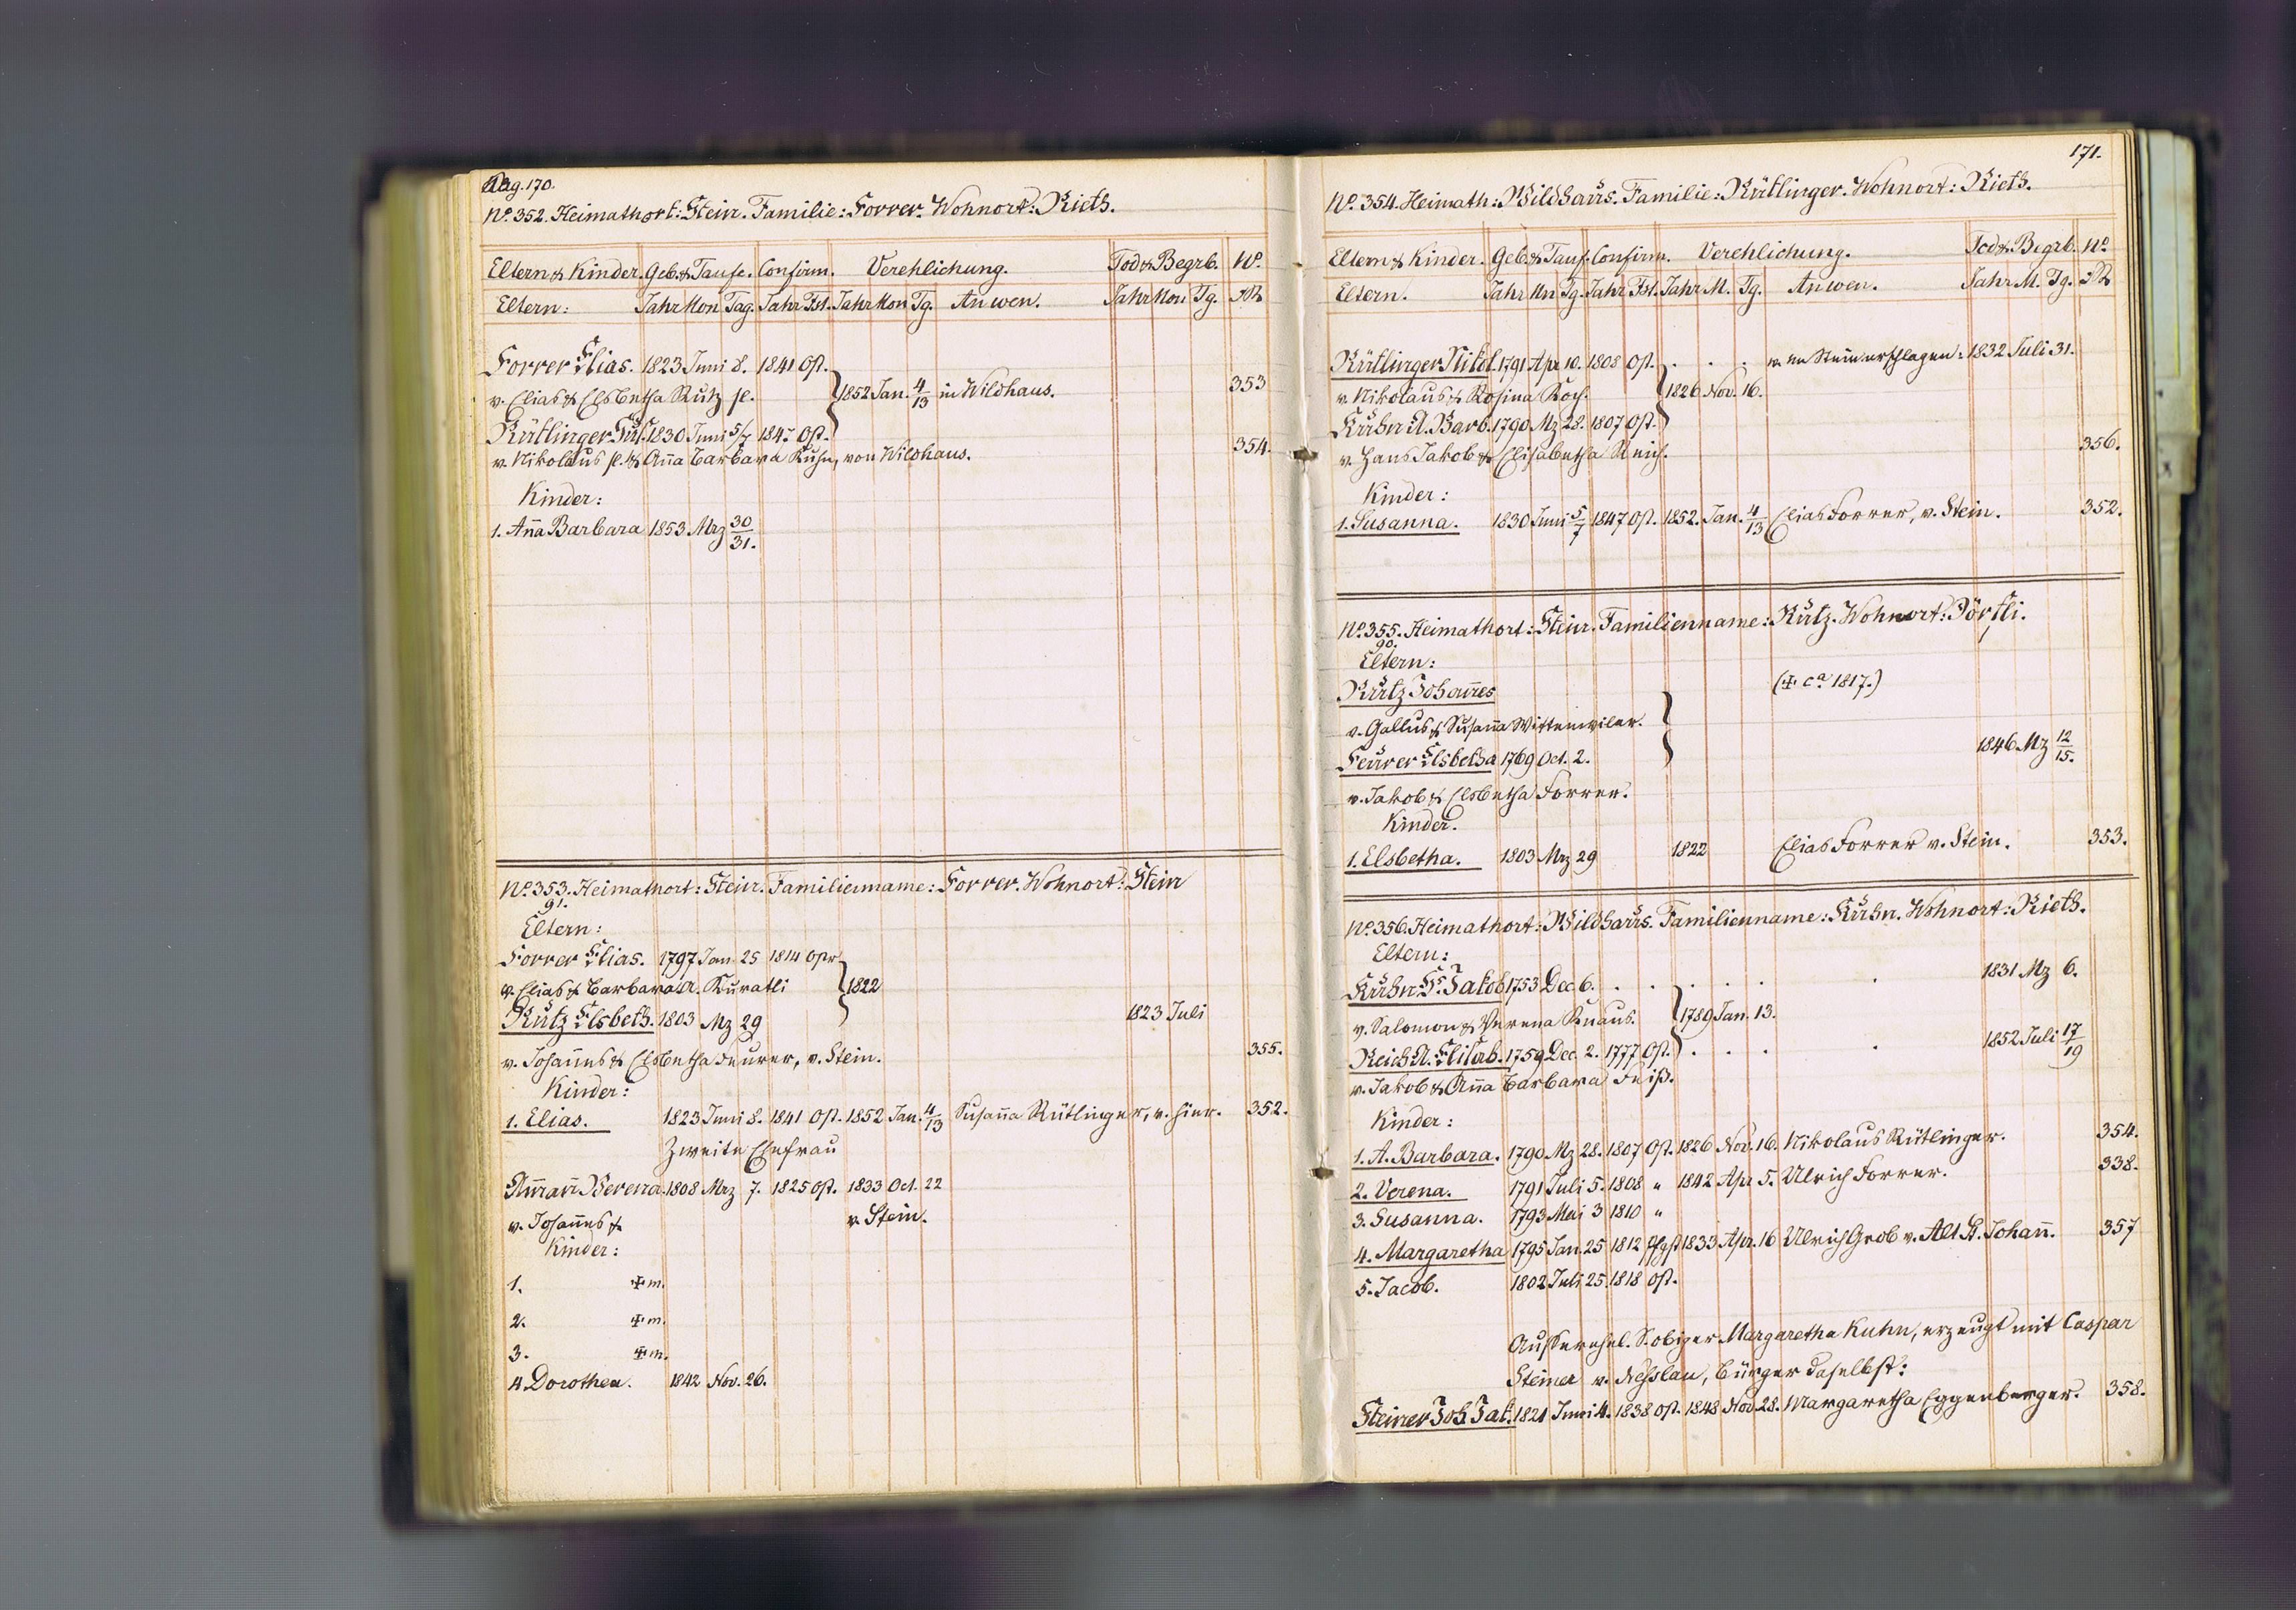 Pag. 170.
No. 352. Heimathort: Stein. Familie: Forrer. Wohnort: Rieth.
Eltern & Kinder. Geb. & Taufe. Confirm. Verehlichung. Tod & Begrb. No.
Eltern: Jahr Mon Tag. Jahr Fst. Jahr Mon Tg. An wen. Jahr Mon Tg.
Forrer Elias. 1823 Juni 8. 1841 Ost.
v. Elias & Elsbetha Rutz sl. 1852 Jan. 4/13 in Wildhaus. 353
Rütlinger Sus. 1830 Juni 5/7 1847 Ost.
v. Nikolaus sl. & Anna Barbara Kuhn, von Wildhaus. 354.
Kinder:
1. Anna Barbara 1853 Mrz 30/31.
No. 353. Heimathort: Stein. Familienname: Forrer. Wohnort: Stein
91.
Eltern:
Forrer Elias. 1797 Jan 25 1814 Ostr
v. Elias & Barbara Kuratli 1822
Rutz Elsbeth. 1803 Mz 29 1823 Juli
v. Johannes & Elsbetha Feurer, v. Stein. 355.
Kinder:
1. Elias. 1823 Juni 8. 1841 Ost. 1852 Jan. 4/13 Susanna Rütlinger, v. hier. 352.
Zweite Ehefrau
Amann Verena. 1808 Mrz 7. 1825 Ost. 1833 Oct. 22
v. Johannes & v. Stein.
Kinder:
1. ☩ m.
2. ☩ m.
3. ☩ m.
4. Dorothea. 1842 Nov. 26.
171.
No. 354. Heimath: Wildhaus. Familie: Rütlinger. Wohnort: Rieth.
Eltern & Kinder. Geb. & Tauf. Confirm. Verehlichung. Tod & Begrb. No
Eltern. Jahr Mn Tg. Jahr Fst. Jahr M. Tg. An wen. Jahr M. Tg.
Rütlinger Nikol. 1791 Apr 10. 1808 Ost. . . . v. em Stein erschlagen: 1832 Juli 31.
v. Nikolaus & Rosina Koch. 1826 Nov. 16.
Kuhn A. Barb. 1790 Mz 28. 1807 Ost.
v. Hans Jakob & Elisabetha Reich. 356.
Kinder:
1. Susanna. 1830 Juni 5/7 1847 Ost. 1852. Jan. 4/13 Elias Forrer, v. Stein. 352.
No. 355. Heimathort: Stein. Familienname: Rutz. Wohnort: Dörfli.
90.
Eltern:
Rutz Johannes (☩ ca 1817.)
v. Gallus & Susanna Wittenwiler.
Feurer Elsbetha 1769 Oct. 2. 1846 Mz 12/15.
v. Jakob & Elsbetha Forrer.
Kinder.
1. Elsbetha. 1803 Mrz 29 1822 Elias Forrer v. Stein. 353.
No. 356. Heimathort: Wildhaus. Familienname: Kuhn. Wohnort: Rieth.
Eltern:
Kuhn Hs. Jakob 1753 Dec 6. . . . . . . 1831 Mz 6.
v. Salomon & Verena Knaus. 1789 Jan. 13.
Reich A. Elisab. 1759 Dec. 2. 1777 Ost. . . . . 1852 Juli 17/19
v. Jakob & Anna Barbara Feiss.
Kinder:
1. A. Barbara. 1790 Mz 28. 1807 Ost. 1826 Nov. 16. Nikolaus Rütlinger. 354.
2. Verena. 1791 Juli 5. 1808 " 1842 Apr 5. Ulrich Forrer. 338.
3. Susanna. 1793 Mai 3 1810 "
4. Margaretha 1795 Jan. 25 1812 Pfgst 1833 Apr. 16 Ulrich Grob v. Alt St. Johann. 357
5. Jacob. 1802 Juli 25. 1818 Ost.
Ausserehel. S. obiger Margaretha Kuhn, erzeugt mit Caspar
Steiner v. Nesslau, Bürger daselbst:
Steiner Joh. Jak. 1821 Juni 4. 1838 Ost. 1848 Nov. 28. Margaretha Eggenberger. 358.